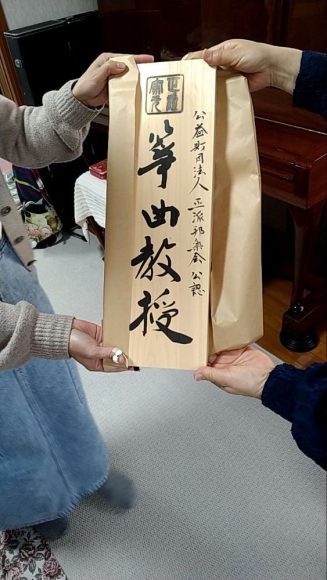 公益財団法人 正派邦楽会 公認
箏曲教授